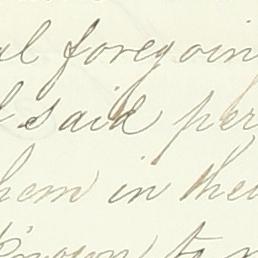 al foregoin
d said per
hem in thei
known to